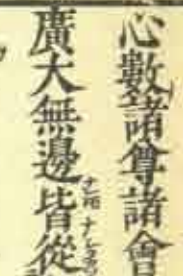 心數諸尊諸會
廣大無邊皆從